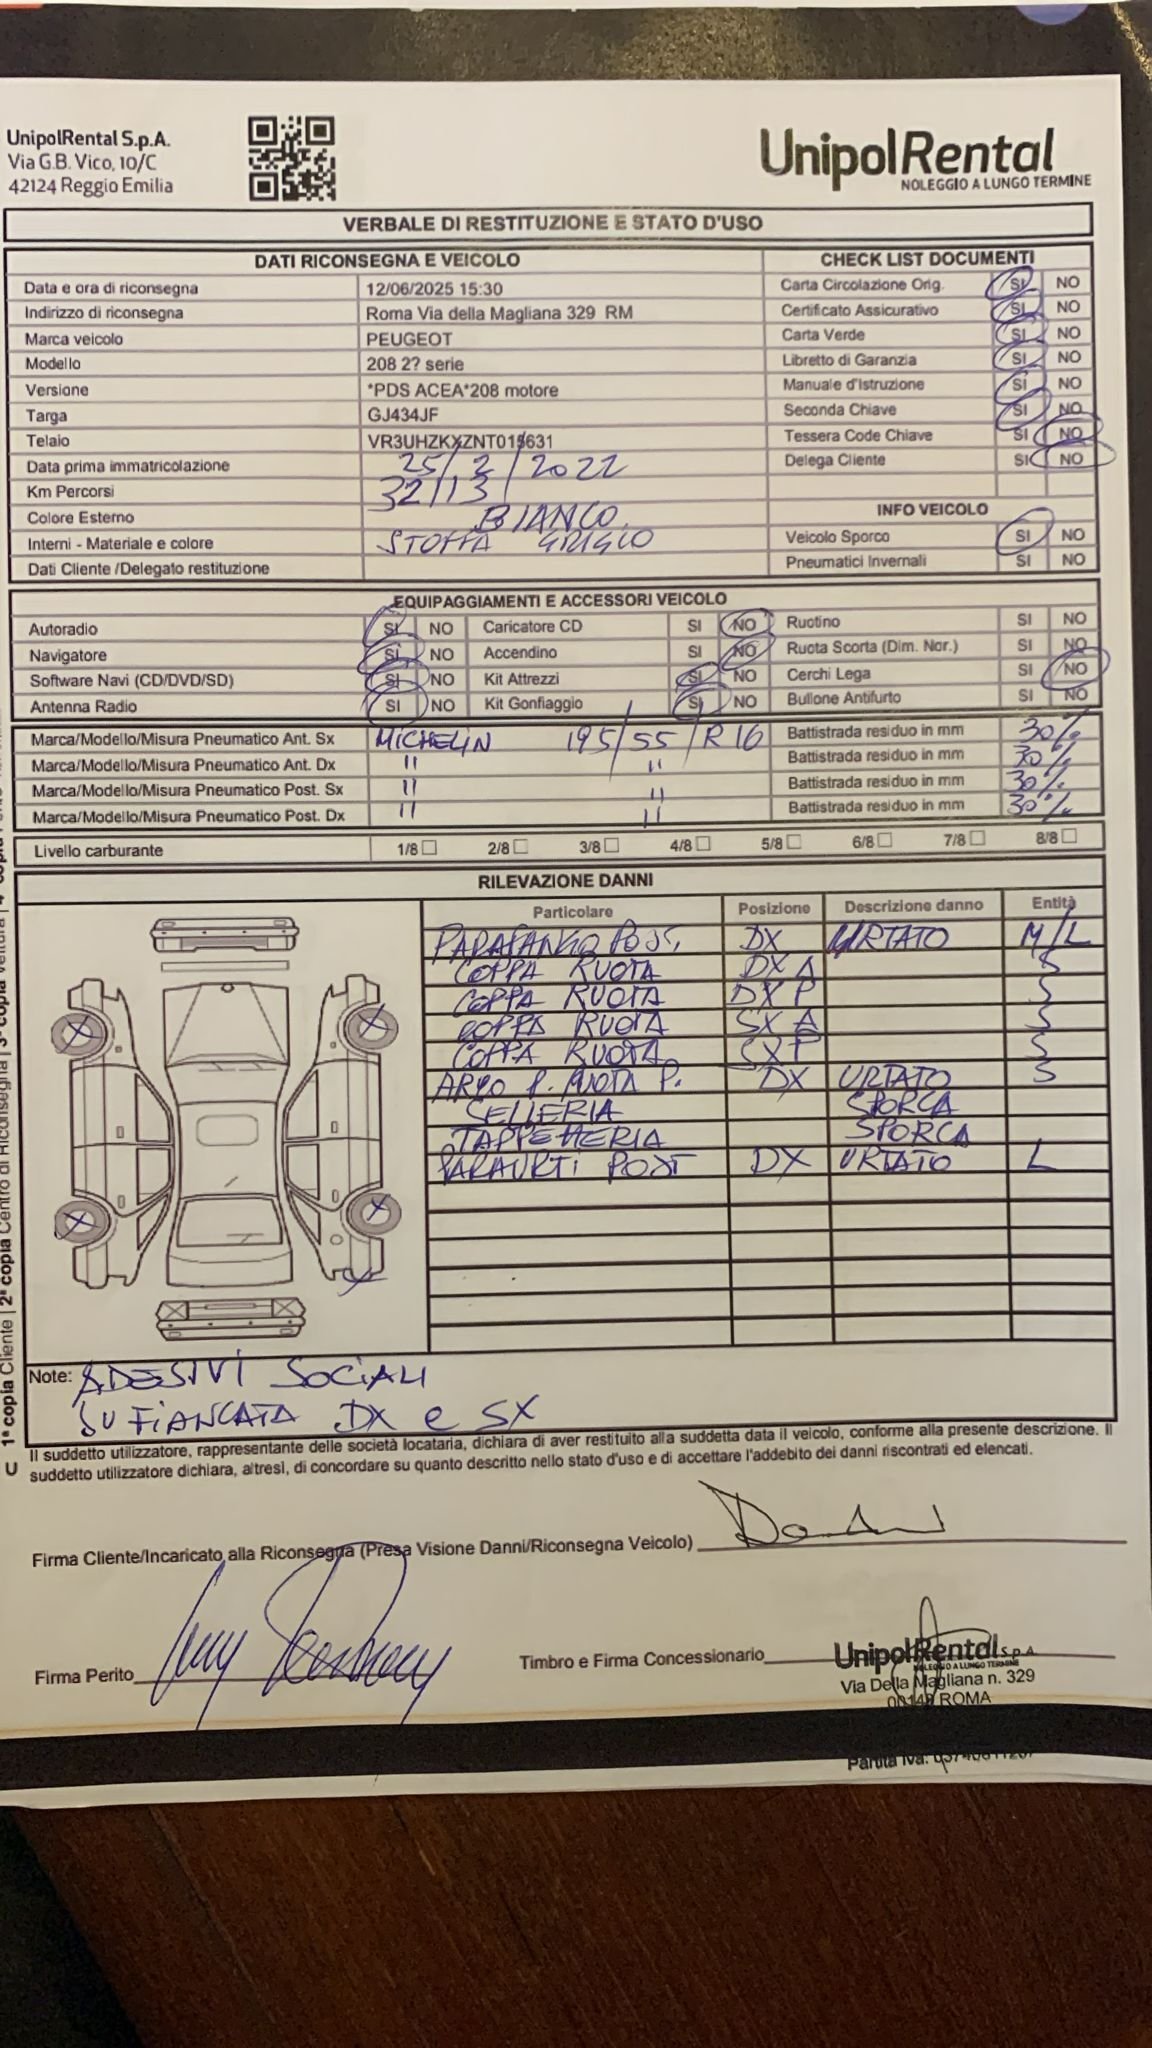 UnipolRental S.p.A.
Via G.B. Vico, 10/C
42124 Reggio Emilia
UnipolRental
NOLEGGIO A LUNGO TERMINE
VERBALE DI RESTITUZIONE E STATO D'USO
DATI RICONSEGNA E VEICOLO
Data e ora di riconsegna 12/06/2025 15:30
Indirizzo di riconsegna Roma Via della Magliana 329 RM
Marca veicolo PEUGEOT
Modello 208 2? serie
Versione *PDS ACEA*208 motore
Targa GJ434JF
Telaio VR3UHZKXZNT015631
Data prima immatricolazione 25/2/2022
Km Percorsi 32113
Colore Esterno BIANCO
Interni - Materiale e colore STOFFA GRIGIO
Dati Cliente /Delegato restituzione
CHECK LIST DOCUMENTI
Carta Circolazione Orig. SI NO
Certificato Assicurativo SI NO
Carta Verde SI NO
Libretto di Garanzia SI NO
Manuale d'Istruzione SI NO
Seconda Chiave SI NO
Tessera Code Chiave SI NO
Delega Cliente SI NO
INFO VEICOLO
Veicolo Sporco SI NO
Pneumatici Invernali SI NO
EQUIPAGGIAMENTI E ACCESSORI VEICOLO
Autoradio SI NO Caricatore CD SI NO Ruotino SI NO
Navigatore SI NO Accendino SI NO Ruota Scorta (Dim. Nor.) SI NO
Software Navi (CD/DVD/SD) SI NO Kit Attrezzi SI NO Cerchi Lega SI NO
Antenna Radio SI NO Kit Gonfiaggio SI NO Bullone Antifurto SI NO
Marca/Modello/Misura Pneumatico Ant. Sx MICHELIN 195/55/R16 Battistrada residuo in mm 30%
Marca/Modello/Misura Pneumatico Ant. Dx " " Battistrada residuo in mm 30%
Marca/Modello/Misura Pneumatico Post. Sx " " Battistrada residuo in mm 30%
Marca/Modello/Misura Pneumatico Post. Dx " " Battistrada residuo in mm 30%
Livello carburante 1/8 2/8 3/8 4/8 5/8 6/8 7/8 8/8
RILEVAZIONE DANNI
Particolare Posizione Descrizione danno Entità
PARAFANGO POST. DX URTATO M/L
COPPA RUOTA DX A S
COPPA RUOTA DX P S
COPPA RUOTA SX A S
COPPA RUOTA SX P S
ARCO P. RUOTA P. DX URTATO S
SELLERIA SPORCA
TAPPETTERIA SPORCA
PARAURTI POST DX URTATO L
Note: ADESIVI SOCIALI
SU FIANCATA DX e SX
1ª copia Cliente | 2ª copia Centro di Riconsegna | 3ª copia Vettura | 4ª copia
U
Il suddetto utilizzatore, rappresentante delle società locataria, dichiara di aver restituito alla suddetta data il veicolo, conforme alla presente descrizione. Il
suddetto utilizzatore dichiara, altresì, di concordare su quanto descritto nello stato d'uso e di accettare l'addebito dei danni riscontrati ed elencati.
Firma Cliente/Incaricato alla Riconsegna (Presa Visione Danni/Riconsegna Veicolo)
Firma Perito
Timbro e Firma Concessionario
UnipolRental S.p.A.
NOLEGGIO A LUNGO TERMINE
Via Della Magliana n. 329
ROMA
Partita Iva: